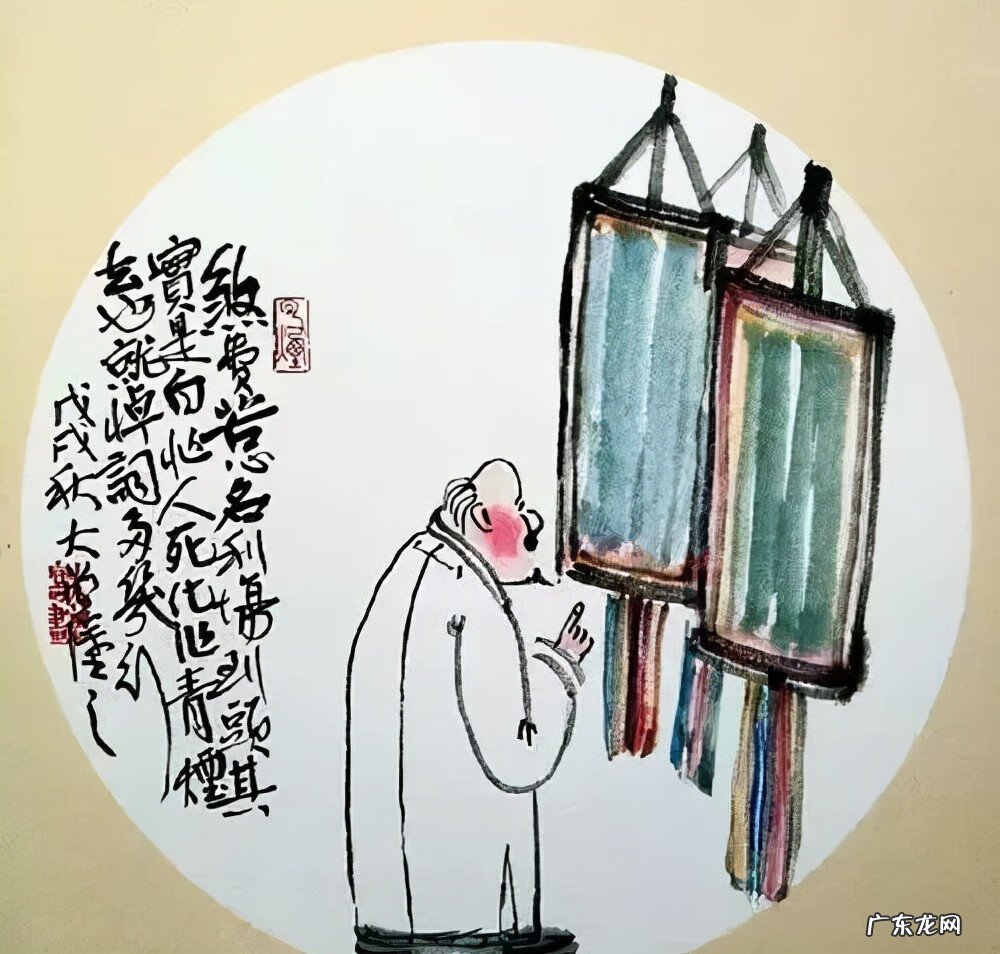 煞費苦心名利場到頭其
實是白忙人死化作青煙
去也就悼詞多幾行
戊戌秋大
广东龙网